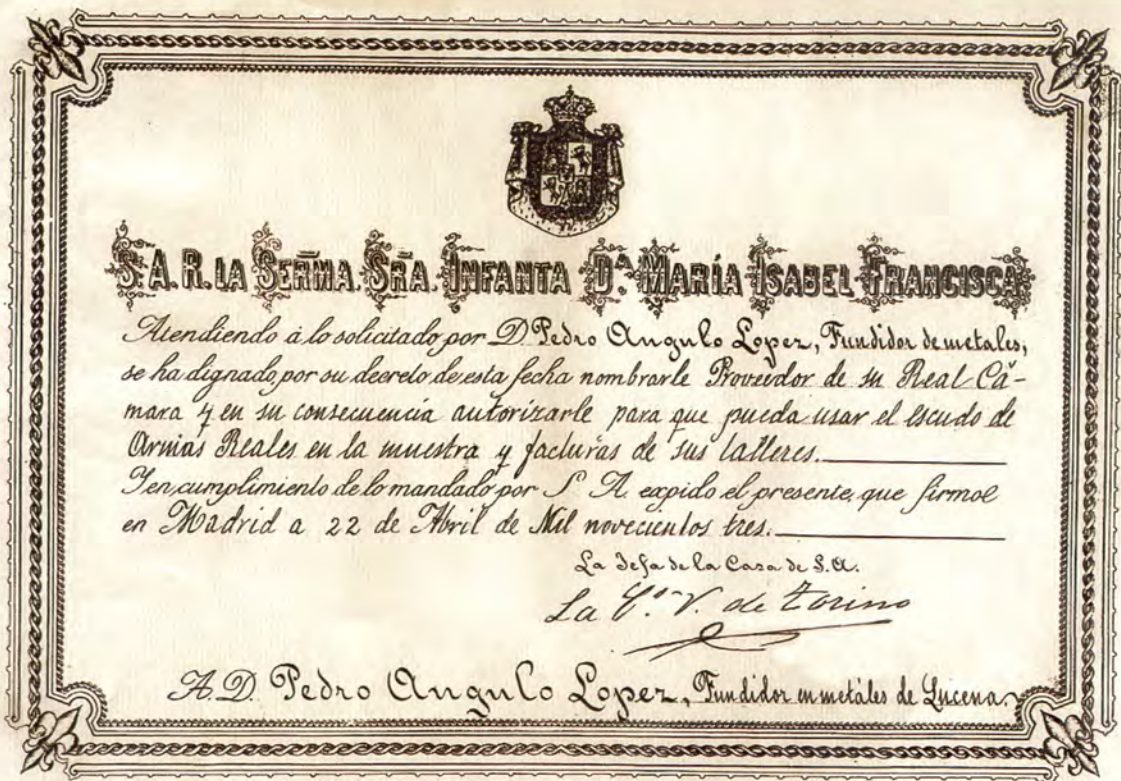 S. A. R. LA SERMA. SRA. INFANTA Dª. MARÍA ISABEL FRANCISCA
Atendiendo á lo solicitado por D. Pedro Angulo Lopez, Fundidor de metales,
se ha dignado, por su decreto de esta fecha nombrarle Proveedor de su Real Cá-
mara y en su consecuencia autorizarle para que pueda usar el escudo de
Armas Reales en la muestra y facturas de sus talleres.
Y en cumplimiento de lo mandado por S. A. expido el presente, que firmo
en Madrid a 22 de Abril de Mil novecientos tres.
La Jefa de la Casa de S. A.
La de Torino
A D. Pedro Angulo Lopez, Fundidor en metáles de Lucena.